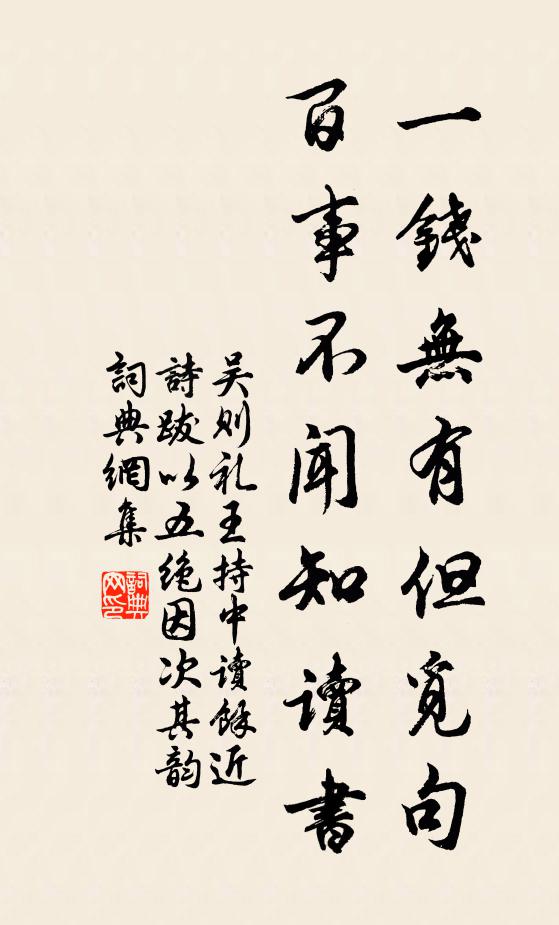 一錢無有但覓句
百事不聞知讀書
吴则礼王持中讀餘近
詩跋以五绝因次其韵
詞典網集
詞典网印